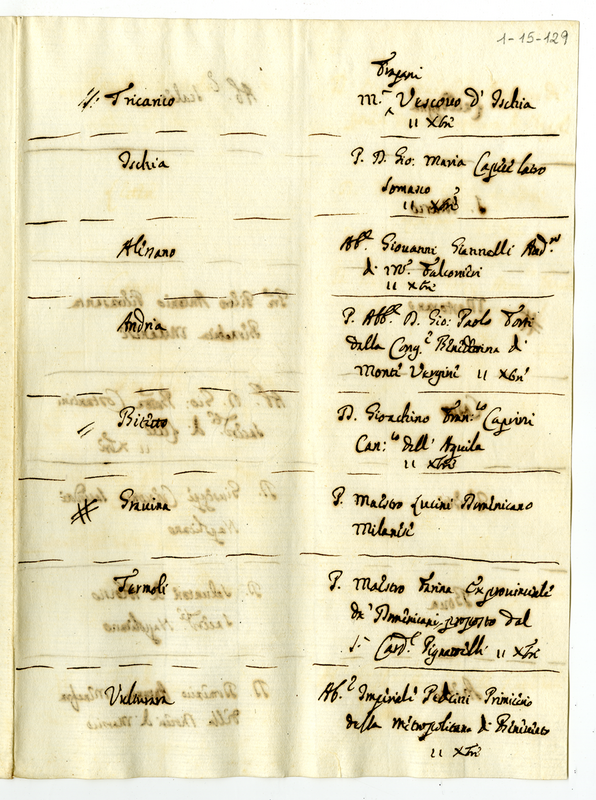 1-15-129
Tricarico
Trapani
M.r Vescovo d' Ischia
11 Xbri
Ischia
P. D. Gio: Maria Capeci Latro
Somasco
11 Xbri
Alesano
Ab.e Giovanni Giannelli Aud.re
di M.r Falconieri
11 Xbri
Andria
P. Abb.e D. Gio: Paolo Torti
della Cong.e Benedettina di
Monte Vergine 11 Xbri
Bitetto
D. Gioachino Fran.co
Can.co dell' Aquila
11 Xbri
Gravina
P. Maestro Lucini Domenicano
Milanese
Termoli
P. Maestro Farina Exprovinciale
de' Domenicani proposto dal
S.r Card.l Pignattelli 11 Xbri
Vulturara
Ab.e Imperiale Pedicini Primicerio
della Metropolitana di Benevento
11 Xbri